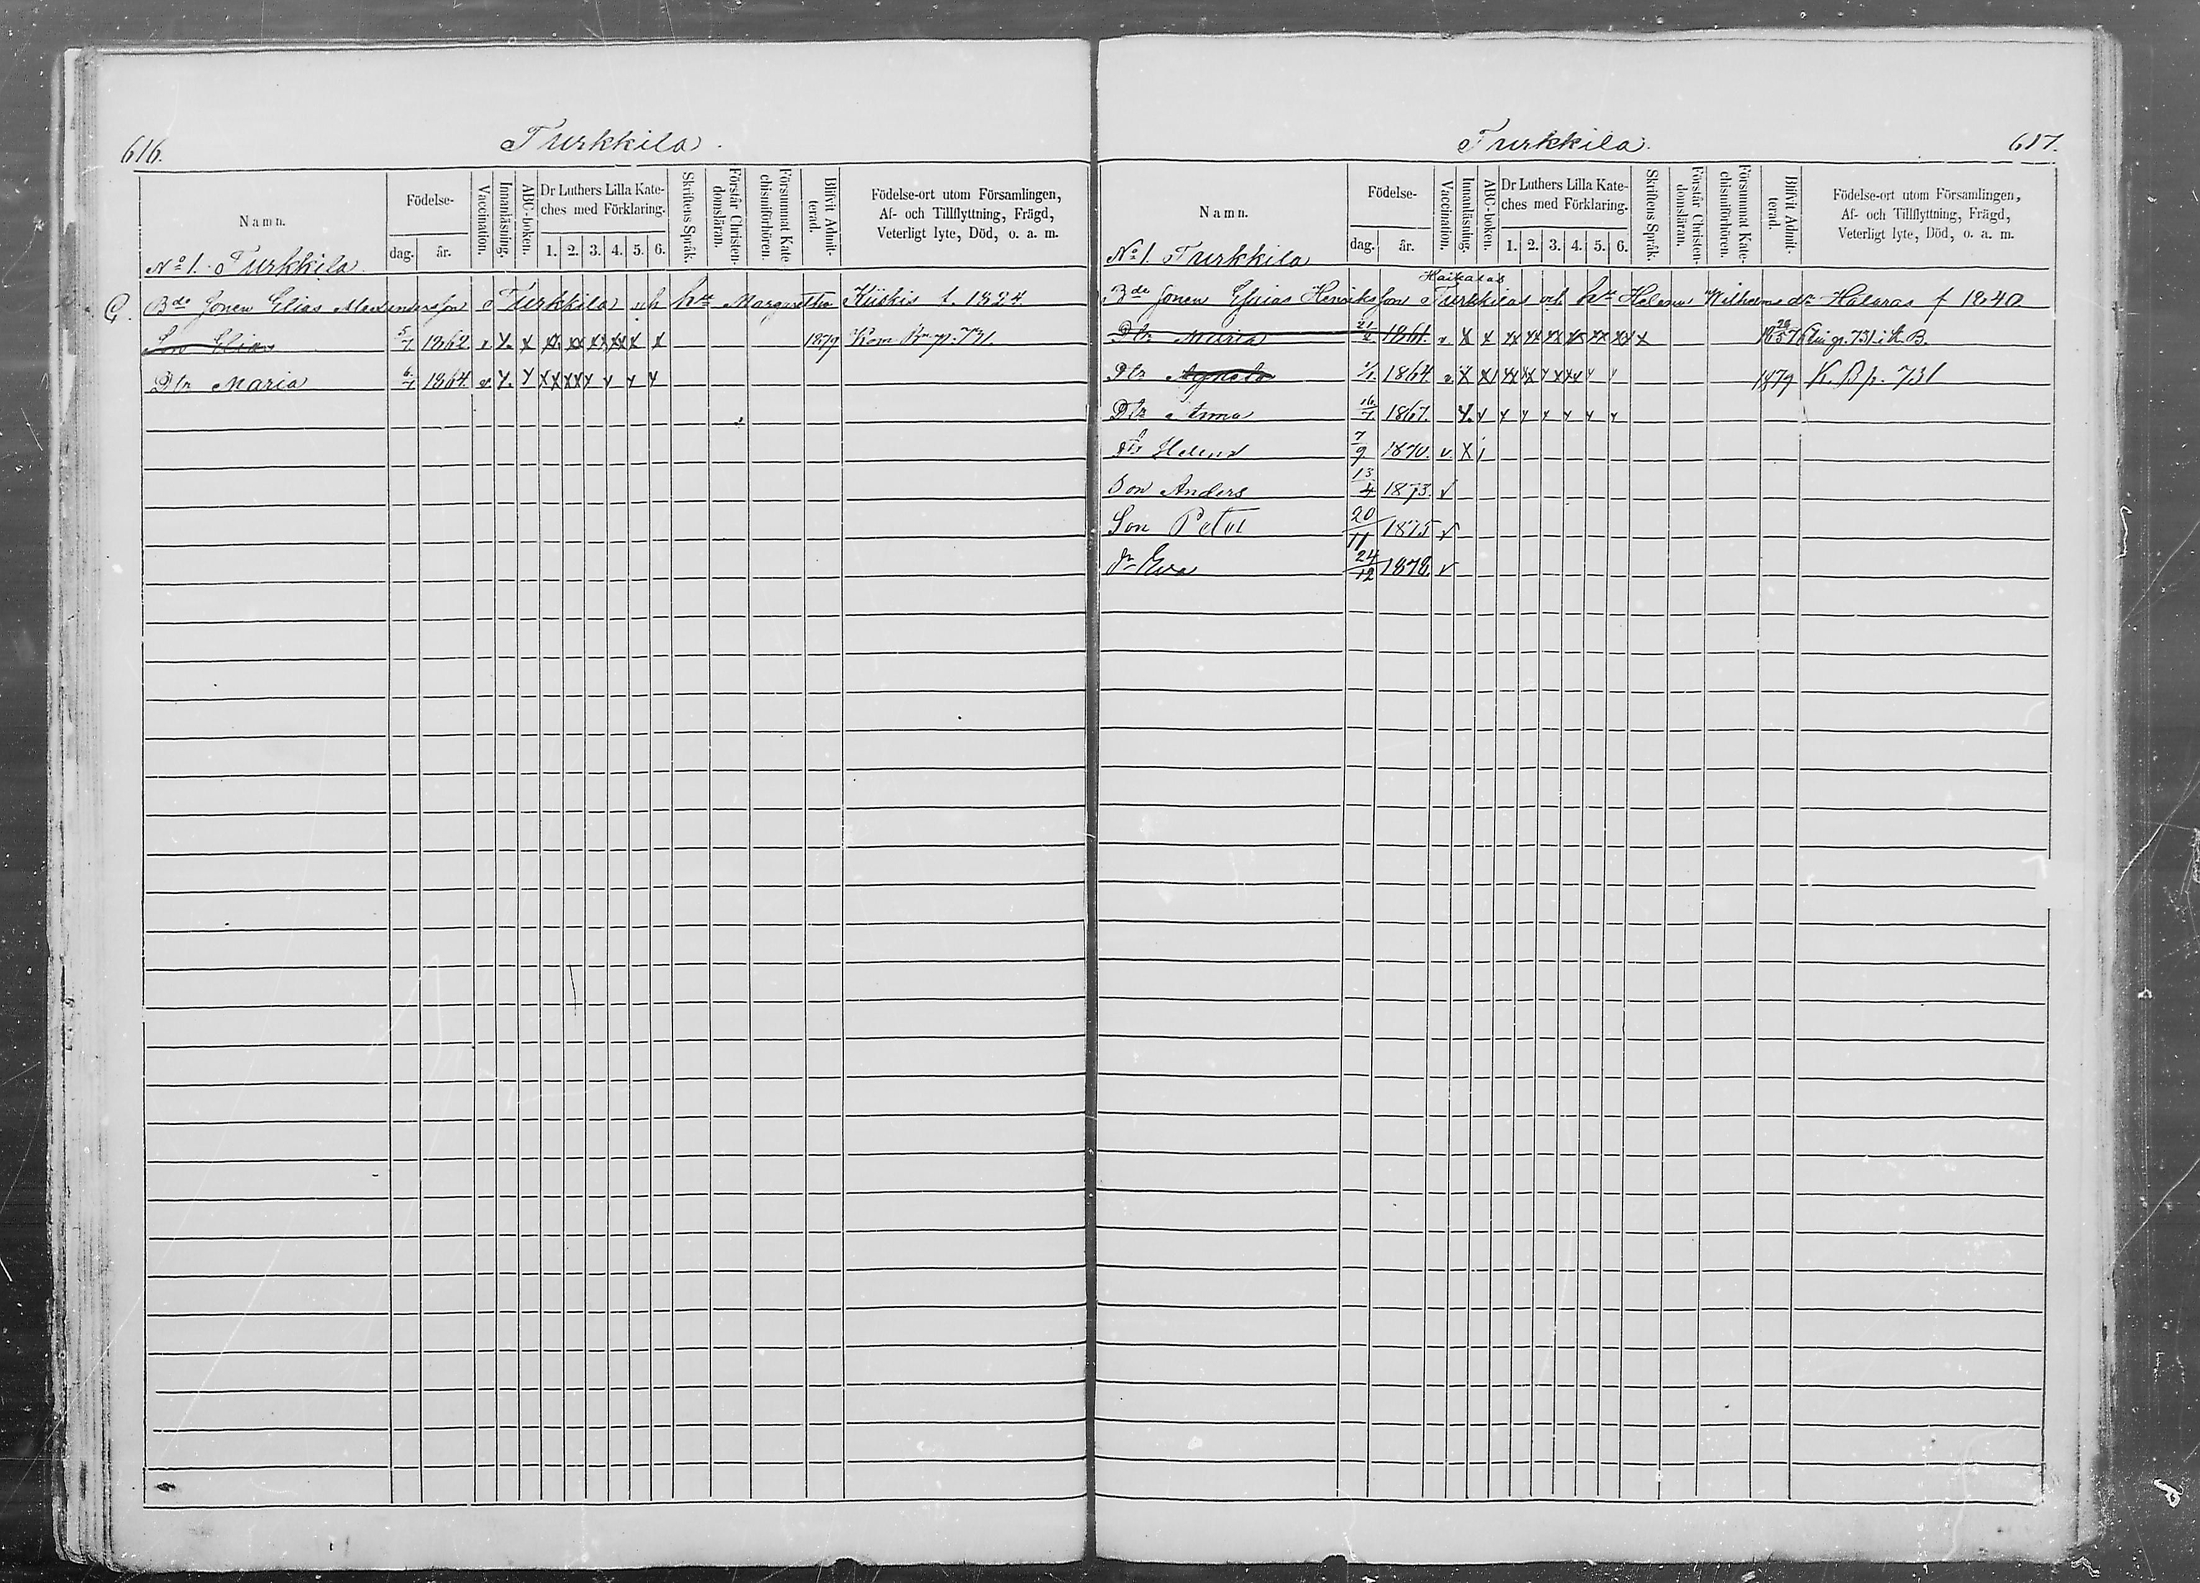 616.
Turkkila.
Namn.
Födelse-
dag.
år.
Vaccination.
Innanläsning.
ABC-boken.
Dr Luthers Lilla Kate-
ches med Förklaring.
1. 2. 3. 4. 5. 6.
Skriftens Språk.
Förstår Christen-
domsläran.
Försummat Kate
chismiförhören.
Blifvit Admit-
terad.
Födelse-ort utom Församlingen,
Af- och Tillflyttning, Frägd,
Veterligt lyte, Död, o. a. m.
No 1. Turkkila
G. Bde Sonen Elias Turkkila och hu Margaretha Kiiskis f. 1824
Son Elias 5/1 1862 v X. x xx xx xx xx x x 1879 Kom. Bn p. 731.
Dtr Maria 6/1 1864 v X. x xx xx x x x x
Turkkila.
617.
Namn.
Födelse-
dag.
år.
Vaccination.
Innanläsning.
ABC-boken.
Dr Luthers Lilla Kate-
ches med Förklaring.
1. 2. 3. 4. 5. 6.
Skriftens Språk.
Förstår Christen-
domsläran.
Försummat Kate-
chismiförhören.
Blifvit Admit-
terad.
Födelse-ort utom Församlingen,
Af- och Tillflyttning, Frägd,
Veterligt lyte, Död, o. a. m.
No 1. Turkkila
Bde Sonen Esaias Henriksson Turkkilas och hu Helena Wilhelmsdr Halaras f 1840
Dtr Maria 1861. v. X x xx xx xx xx xx xx x p. 731 i K. B.
Dtr Agneta 1/1 1864 v. X X xx xx x xx x x 1879 K. B p. 731
Dtr Anna 16/7 1867. X. x x x x x x x
Dtr Helena 7/9 1870. v. X
Son Anders 13/4 1873. v
Son Petter 20/11 1875 v
Dr Eva 24/12 1878 v